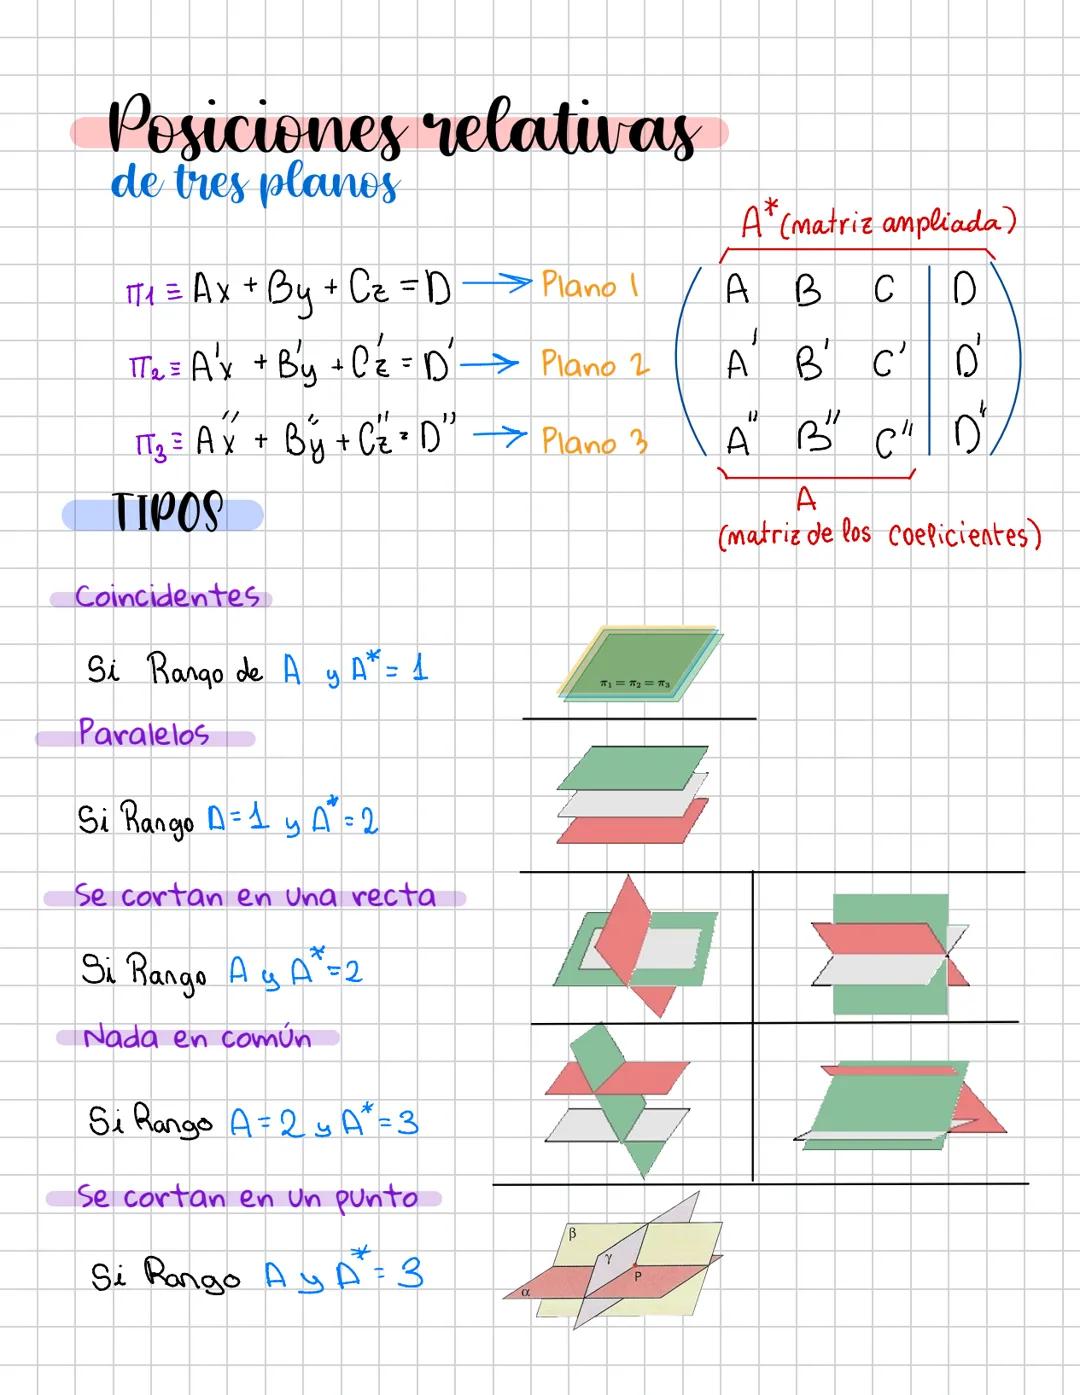 Posiciones relativas
de tres planos
A* (matriz ampliada)
π1 ≡ Ax + By + Cz = D → Plano 1
π2 ≡ A'x + B'y + C'z = D' → Plano 2
π3 ≡ A''x + B''y + C''z = D'' → Plano 3
A B C | D
A' B' C' | D'
A'' B'' C'' | D''
A
(matriz de los coeficientes)
TIPOS
Coincidentes
Si Rango de A y A* = 1
π₁ = π₂ = π₃
Paralelos
Si Rango A = 1 y A* = 2
Se cortan en una recta
Si Rango A y A* = 2
Nada en común
Si Rango A = 2 y A* = 3
Se cortan en un punto
Si Rango A y A* = 3
β
γ
P
α